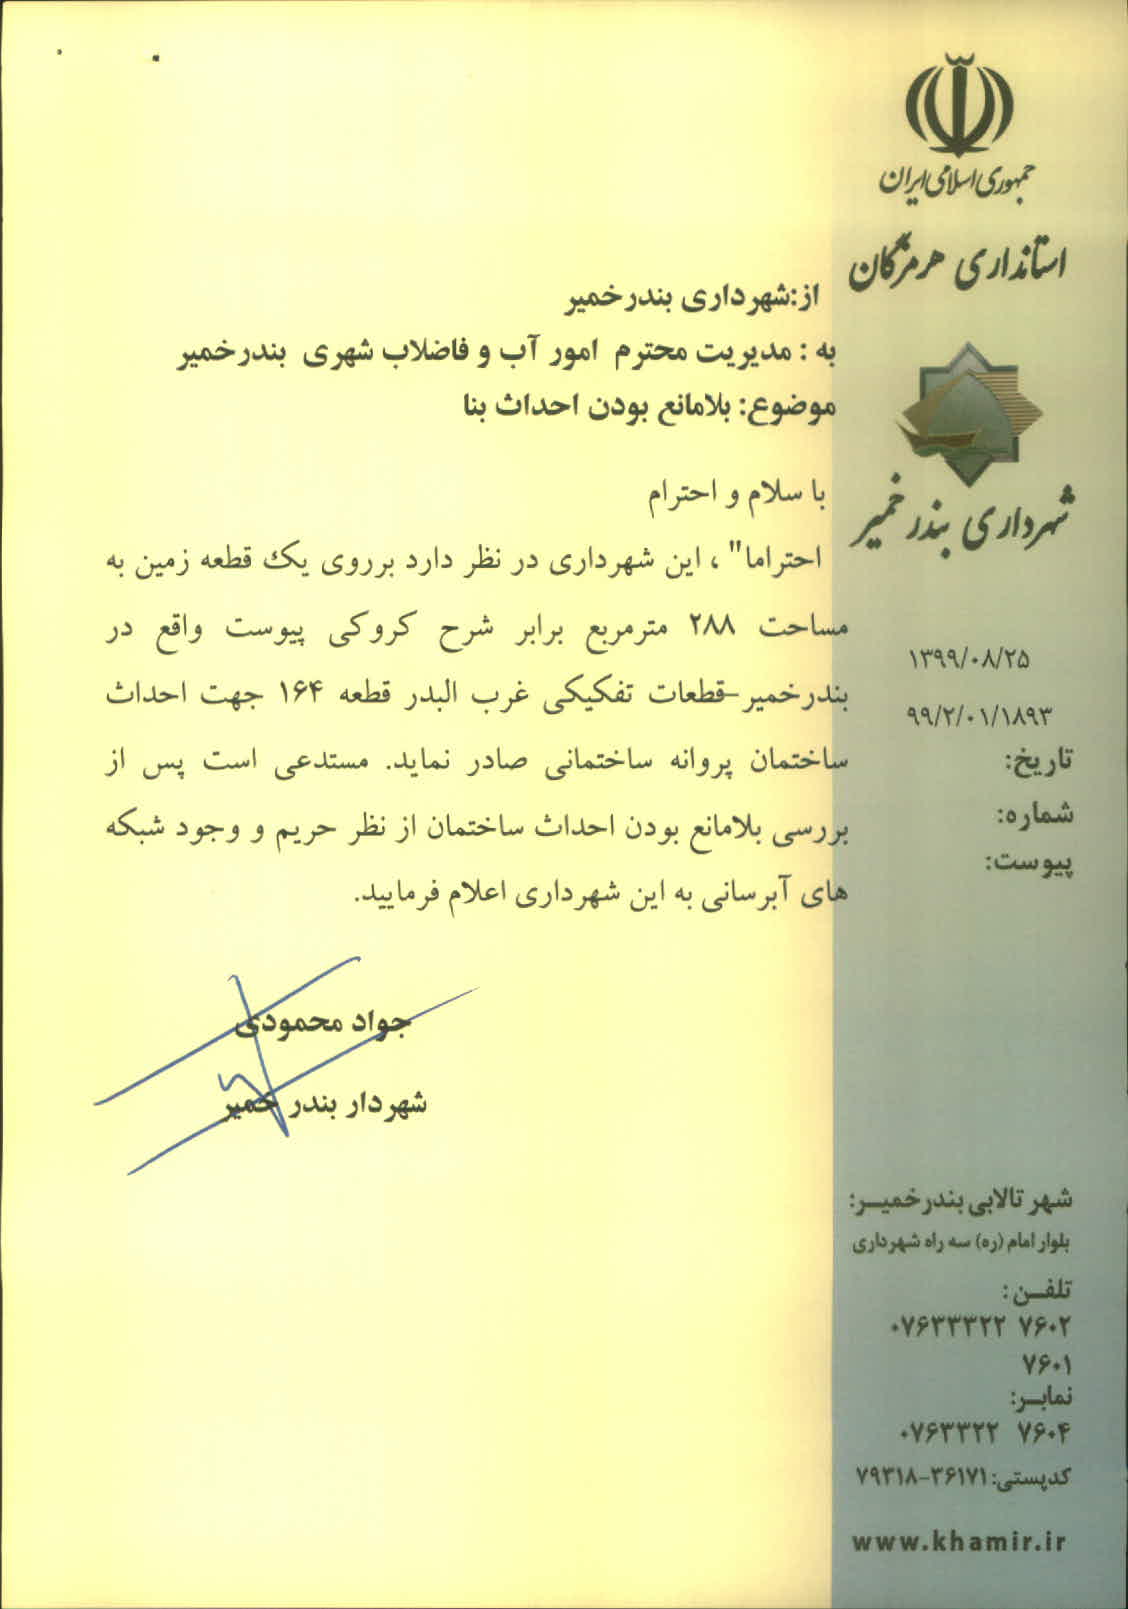 جمهوری اسلامی ایران
استانداری هرمزگان
شهرداری بندرخمیر
۱۳۹۹/۰۸/۲۵
۹۹/۲/۰۱/۱۸۹۳
تاریخ:
شماره:
پیوست:
از:شهرداری بندرخمیر
به : مدیریت محترم امور آب و فاضلاب شهری بندرخمیر
موضوع: بلامانع بودن احداث بنا
با سلام و احترام
احتراما" ، این شهرداری در نظر دارد برروی یک قطعه زمین به
مساحت ۲۸۸ مترمربع برابر شرح کروکی پیوست واقع در
بندرخمیر-قطعات تفکیکی غرب البدر قطعه ۱۶۴ جهت احداث
ساختمان پروانه ساختمانی صادر نماید. مستدعی است پس از
بررسی بلامانع بودن احداث ساختمان از نظر حریم و وجود شبکه
های آبرسانی به این شهرداری اعلام فرمایید.
جواد محمودی
شهردار بندر خمیر
شهر تالابی بندرخمیـر:
بلوار امام (ره) سه راه شهرداری
تلفـن :
۰۷۶۳۳۳۲۲ ۷۶۰۲
۷۶۰۱
نمابـر:
۰۷۶۳۳۲۲ ۷۶۰۴
کدپستی: ۳۶۱۷۱-۷۹۳۱۸
www.khamir.ir